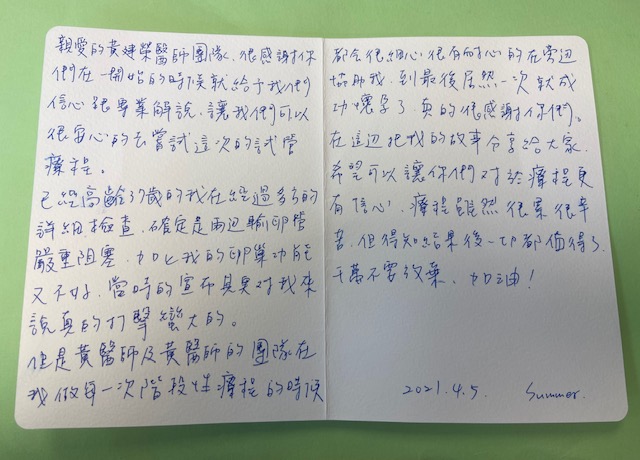 親愛的黃建榮醫師團隊、很感謝你
們在一開始的時候就給予我們
信心很專業解說、讓我們可以
很安心的去嘗試這次的試管
療程。
已經高齡37歲的我在經過多方的
詳細檢查、確定是兩邊輸卵管
嚴重阻塞、加上我的卵巢功能
又不好、當時的宣布其實對我來
說真的打擊蠻大的。
但是黃醫師及黃醫師的團隊在
我做每一次階段性療程的時候
都會很細心很有耐心的在旁邊
協助我、到最後居然一次就成
功懷孕了、真的很感謝你們。
在這邊把我的故事分享給大家、
希望可以讓你們對於療程更
有信心、療程雖然很累很辛
苦、但得知結果後一切都值得了、
千萬不要放棄、加油！
2021.4.5. Summer.